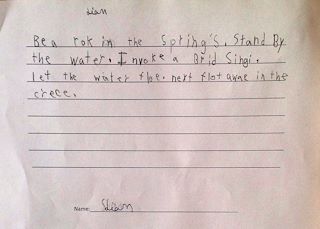 Sian
Be a rok in the Spring's. Stand By
the water. Invoke a Brid Singi.
let the water floe. next flot awae in the
creee.
Name: Sian